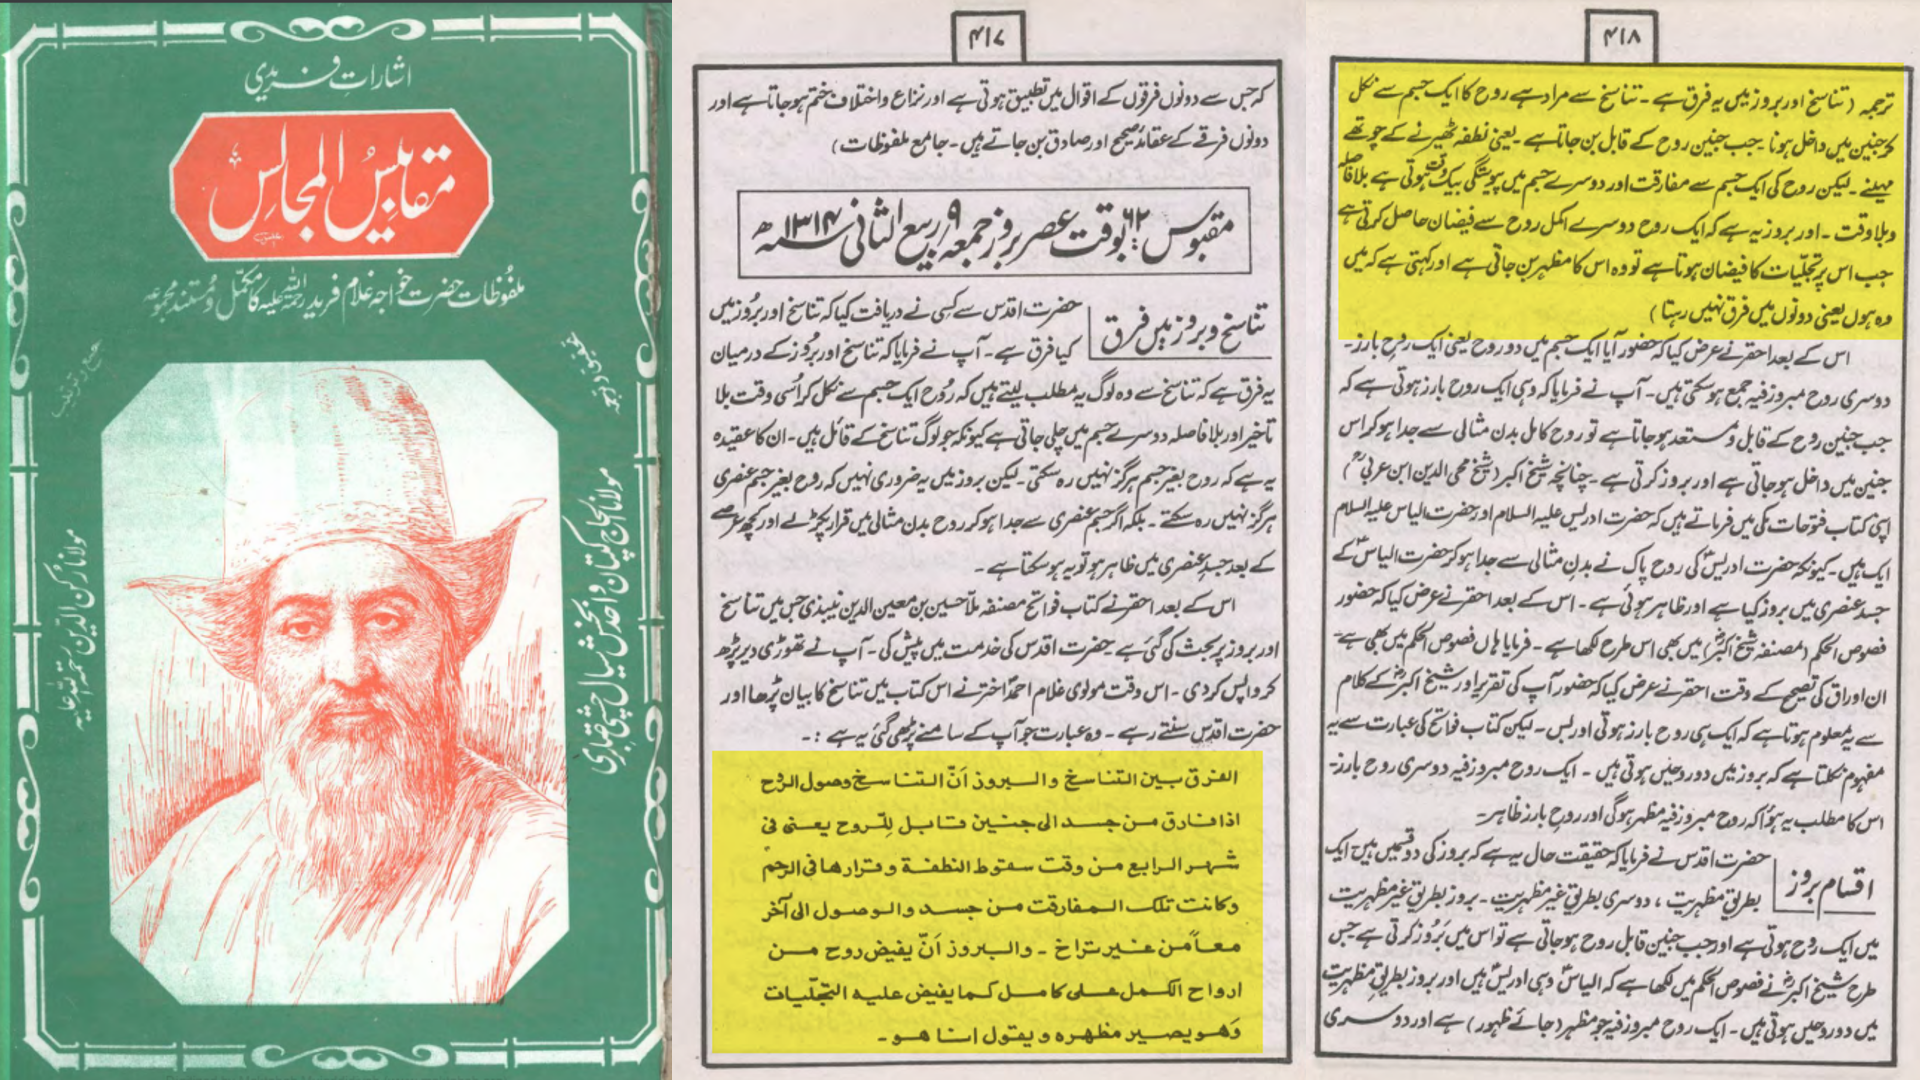 اشارات فریدی
مقابیس المجالس
ملفوظات حضرت خواجہ غلام فرید رحمۃ اللہ علیہ کا مکمل و مستند مجموعہ
جمع و ترتیب
مولانا رکن الدین رحمۃ اللہ علیہ
تحقیق و ترجمہ
مولانا الحاج کپتان واحد بخش سیال چشتی صابری
۴۱۷
کہ جس سے دونوں فرقوں کے اقوال میں تطبیق ہوتی ہے اور نزاع و اختلاف ختم ہوجاتا ہے اور
دونوں فرقے کے عقائد صحیح اور صادق بن جاتے ہیں۔ جامع ملفوظات)
مقبوس ۶۲: بوقت عصر بروز جمعہ ۹ ربیع الثانی ۱۳۱۴ھ
تناسخ و بروز میں فرق
حضرت اقدس سے کسی نے دریافت کیا کہ تناسخ اور بروز میں
کیا فرق ہے۔ آپ نے فرمایا کہ تناسخ اور بروز کے درمیان
یہ فرق ہے کہ تناسخ سے وہ لوگ یہ مطلب لیتے ہیں کہ رُوح ایک جسم سے نکل کر اُسی وقت بلا
تاخیر اور بلا فاصلہ دوسرے جسم میں چلی جاتی ہے کیونکہ جو لوگ تناسخ کے قائل ہیں۔ ان کا عقیدہ
یہ ہے کہ روح بغیر جسم ہرگز نہیں رہ سکتی۔ لیکن بروز میں یہ ضروری نہیں کہ روح بغیر جسم عنصری
ہرگز نہیں رہ سکتے۔ بلکہ اگر جسم عنصری سے جدا ہو کر روح بدن مثالی میں قرار پکڑ لے اور کچھ عرصے
کے بعد جسدِ عنصری میں ظاہر ہو تو یہ ہو سکتا ہے۔
اس کے بعد احقر نے کتاب فواتح مصنفہ ملا حسین بن معین الدین میبذی جس میں تناسخ
اور بروز پر بحث کی گئی ہے حضرت اقدس کی خدمت میں پیش کی۔ آپ نے تھوڑی دیر پڑھ
کر واپس کردی۔ اس وقت مولوی غلام احمد اختر نے اس کتاب میں تناسخ کا بیان پڑھا اور
حضرت اقدس سنتے رہے۔ وہ عبارت جو آپ کے سامنے پڑھی گئی یہ ہے :۔
الفرق بین التناسخ والبروز اَنّ التناسخ وصول الروح
اذا فارق من جسد الی جنین قابل للّروح یعنی فی
شہر الرابع من وقت سقوط النطفة وقرارها فی الرحم
وکانت تلک المفارقت من جسد والوصول الی آخر
معاً من غیر تراخ۔ والبروز اَنّ یفیض روح من
ارواح الکمل علی کامل کما یفیض علیه التجلّیات
وَهو یصیر مظهره ویقول انا هو۔
۴۱۸
ترجمہ (تناسخ اور بروز میں یہ فرق ہے۔ تناسخ سے مراد ہے روح کا ایک جسم سے نکل
کر جنین میں داخل ہونا۔ جب جنین روح کے قابل بن جاتا ہے۔ یعنی نطفہ ٹھیرنے کے چوتھے
مہینے۔ لیکن روح کی ایک جسم سے مفارقت اور دوسرے جسم میں پیوستگی بیک وقت ہوتی ہے بلا فاصلہ
و بلا وقت۔ اور بروز یہ ہے کہ ایک روح دوسرے اکمل روح سے فیضان حاصل کرتی ہے
جب اس پر تجلّیات کا فیضان ہوتا ہے تو وہ اس کا مظہر بن جاتی ہے اور کہتی ہے کہ میں
وہ ہوں یعنی دونوں میں فرق نہیں رہتا)
اس کے بعد احقر نے عرض کیا کہ حضور آیا ایک جسم میں دو روح یعنی ایک روحِ بارز۔
دوسری روح مبروز فیہ جمع ہو سکتی ہیں۔ آپ نے فرمایا کہ وہی ایک روح بارز ہوتی ہے کہ
جب جنین روح کے قابل و مستعد ہو جاتا ہے تو روح کامل بدن مثالی سے جدا ہو کر اس
جنین میں داخل ہو جاتی ہے اور بروز کرتی ہے۔ چنانچہ شیخ اکبر (شیخ محی الدین ابن عربیؒ)
اپنی کتاب فتوحات مکی میں فرماتے ہیں کہ حضرت ادریس علیہ السلام اور حضرت الیاس علیہ السلام
ایک ہیں۔ کیونکہ حضرت ادریسؑ کی روح پاک نے بدنِ مثالی سے جدا ہو کر حضرت الیاسؑ کے
جسد عنصری میں بروز کیا ہے اور ظاہر ہوئی ہے۔ اس کے بعد احقر نے عرض کیا کہ حضور
فصوص الحکم (مصنفہ شیخ اکبرؒ) میں بھی اس طرح لکھا ہے۔ فرمایا ہاں فصوص الحکم میں بھی ہے۔
ان اوراق کی تصحیح کے وقت احقر نے عرض کیا کہ حضور آپ کی تقریر اور شیخ اکبرؒ کے کلام
سے یہ معلوم ہوتا ہے کہ ایک ہی روح بارز ہوتی اور بس۔ لیکن کتاب فواتح کی عبارت سے یہ
مفہوم نکلتا ہے کہ بروز میں دو روحیں ہوتی ہیں۔ ایک روح مبروز فیہ دوسری روح بارز۔
اس کا مطلب یہ ہوُا کہ روح مبروز فیہ مظہر ہوگی اور روحِ بارز ظاہر۔
اقسام بروز
حضرت اقدس نے فرمایا کہ حقیقت حال یہ ہے کہ بروز کی دو قسمیں ہیں ایک
بطریق مظہریت، دوسری بطریق غیر مظہریت۔ بروز بطریق غیر مظہریت
میں ایک روح ہوتی ہے اور جب جنین قابل روح ہو جاتی ہے تو اس میں بَروُز کرتی ہے جس
طرح شیخ اکبرؒ نے فصوص الحکم میں لکھا ہے کہ الیاسؑ وہی ادریسؑ ہیں اور بروز بطریق مظہریت
میں دو روحیں ہوتی ہیں۔ ایک روح مبروز فیہ جو مظہر (جائے ظہور) ہے اور دوسری